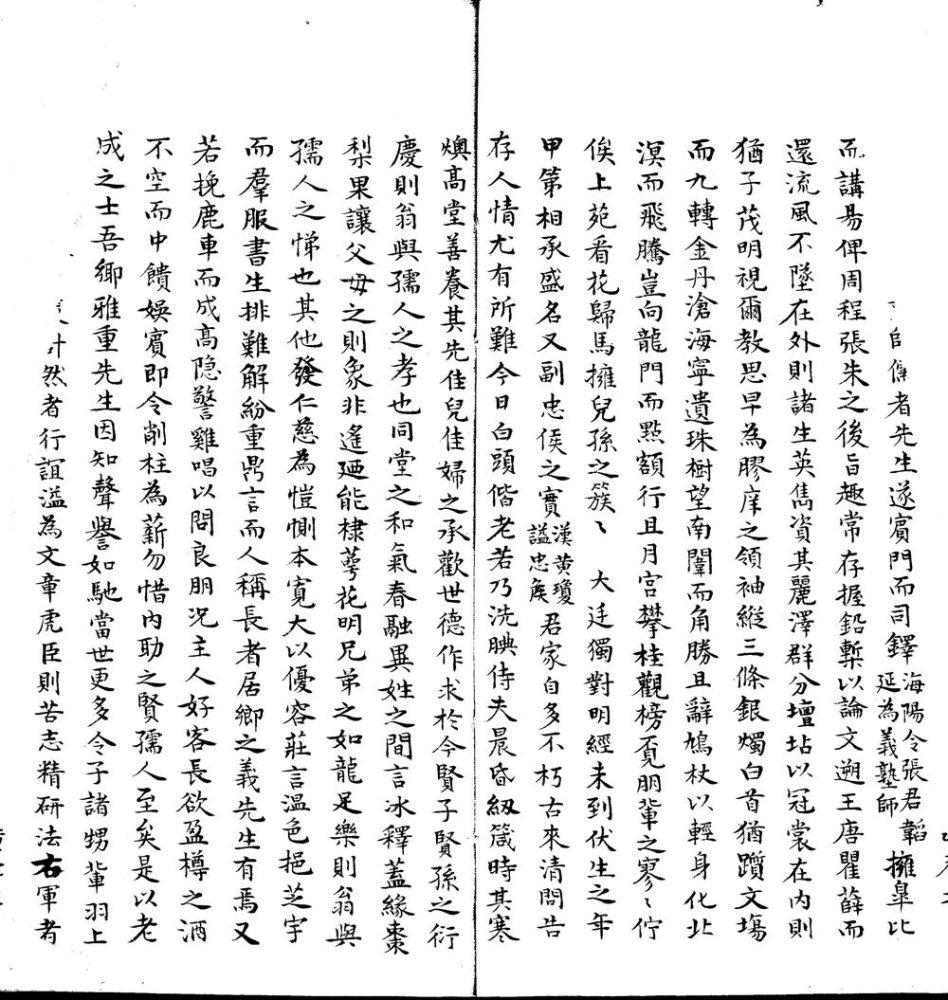 自傷者先生遂賓門而司鐸海陽令張君韜延為義塾師擁皐比
而講易俾周程張朱之後旨趣常存握鉛槧以論文遡王唐瞿薛而
還流風不墜在外則諸生英雋資其麗澤群分壇坫以冠裳在内則
猶子茂明視爾教思早為膠庠之領袖縱三條銀燭白首猶躓文場
而九轉金丹滄海寧遺珠樹望南闈而角勝且辭鳩杖以輕身化北
溟而飛騰豈向龍門而點額行且月宫攀桂觀榜覔朋軰之寥〻佇
俟上苑看花歸馬擁兒孫之簇〻大廷獨對明經未到伏生之年
甲第相承盛名又副忠侯之實漢黄瓊謚忠侯君家自多不朽古來清問告
存人情尤有所難今日白頭偕老若乃洗腆侍夫晨昏紉箴時其寒
燠高堂善養其先佳兒佳婦之承歡世德作求於今賢子賢孫之衍
慶則翁與孺人之孝也同堂之和氣春融異姓之間言冰釋蓋緣棗
梨果讓父母之則象非遙廼能棣萼花明兄弟之如龍足樂則翁與
孺人之悌也其他發仁慈為愷惻本寛大以優容莊言温色挹芝宇
而羣服書生排難解紛重鼎言而人稱長者居鄉之義先生有焉又
若挽鹿車而成高隐警雞唱以問良朋况主人好客長欲盈樽之酒
不空而中饋娱賓即令削柱為薪勿惜内助之賢孺人至矣是以老
成之士吾鄉雅重先生因知聲譽如馳當世更多令子諸甥軰羽上
計然者行誼溢為文章虎臣則苦志精研法右軍者